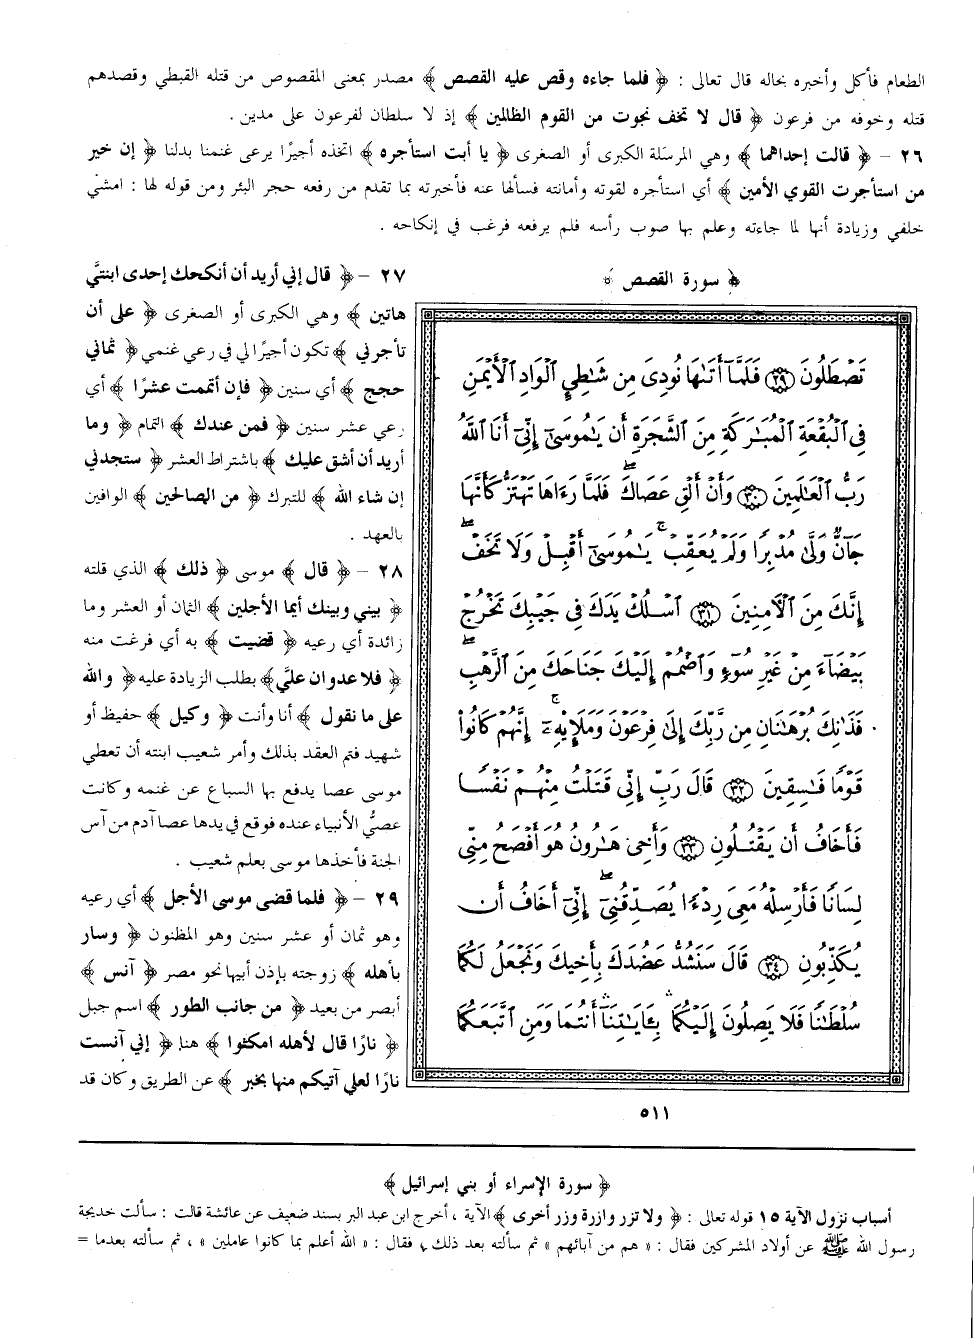 الطعام فأكل وأخبره بحاله قال تعالى : ﴿ فلما جاءه وقص عليه القصص ﴾ مصدر بمعنى المقصوص من قتله القبطي وقصدهم
قتله وخوفه من فرعون ﴿ قال لا تخف نجوت من القوم الظالمين ﴾ إذ لا سلطان لفرعون على مدين .
٢٦ – ﴿ قالت إحداهما ﴾ وهي المرسَلة الكبرى أو الصغرى ﴿ يا أبت استأجره ﴾ اتخذه أجيرًا يرعى غنمنا بدلنا ﴿ إن خير
من استأجرت القوي الأمين ﴾ أي استأجره لقوته وأمانته فسألها عنه فأخبرته بما تقدم من رفعه حجر البئر ومن قوله لها : امشي
خلفي وزيادة أنها لما جاءته وعلم بها صوب رأسه فلم يرفعه فرغب في إنكاحه .
﴿ سورة القصص ﴾
تَصْطَلُونَ ﴿٢٩﴾ فَلَمَّآ أَتَىٰهَا نُودِىَ مِن شَٰطِئِ ٱلْوَادِ ٱلْأَيْمَنِ
فِى ٱلْبُقْعَةِ ٱلْمُبَٰرَكَةِ مِنَ ٱلشَّجَرَةِ أَن يَٰمُوسَىٰٓ إِنِّىٓ أَنَا ٱللَّهُ
رَبُّ ٱلْعَٰلَمِينَ ﴿٣٠﴾ وَأَنْ أَلْقِ عَصَاكَ ۖ فَلَمَّا رَءَاهَا تَهْتَزُّ كَأَنَّهَا
جَآنٌّ وَلَّىٰ مُدْبِرًا وَلَمْ يُعَقِّبْ ۚ يَٰمُوسَىٰٓ أَقْبِلْ وَلَا تَخَفْ ۖ
إِنَّكَ مِنَ ٱلْأَمِنِينَ ﴿٣١﴾ ٱسْلُكْ يَدَكَ فِى جَيْبِكَ تَخْرُجْ
بَيْضَآءَ مِنْ غَيْرِ سُوٓءٍ وَٱضْمُمْ إِلَيْكَ جَنَاحَكَ مِنَ ٱلرَّهْبِ ۖ
فَذَٰنِكَ بُرْهَٰنَانِ مِن رَّبِّكَ إِلَىٰ فِرْعَوْنَ وَمَلَإِي۟هِۦٓ ۚ إِنَّهُمْ كَانُوا۟
قَوْمًا فَٰسِقِينَ ﴿٣٢﴾ قَالَ رَبِّ إِنِّى قَتَلْتُ مِنْهُمْ نَفْسًا
فَأَخَافُ أَن يَقْتُلُونِ ﴿٣٣﴾ وَأَخِى هَٰرُونُ هُوَ أَفْصَحُ مِنِّى
لِسَانًا فَأَرْسِلْهُ مَعِىَ رِدْءًا يُصَدِّقُنِىٓ ۖ إِنِّىٓ أَخَافُ أَن
يُكَذِّبُونِ ﴿٣٤﴾ قَالَ سَنَشُدُّ عَضُدَكَ بِأَخِيكَ وَنَجْعَلُ لَكُمَا
سُلْطَٰنًا فَلَا يَصِلُونَ إِلَيْكُمَا ۛ بِـَٔايَٰتِنَآ ۛ أَنتُمَا وَمَنِ ٱتَّبَعَكُمَا
٥١١
٢٧ – ﴿ قال إني أريد أن أنكحك إحدى ابنتيَّ
هاتين ﴾ وهي الكبرى أو الصغرى ﴿ على أن
تأجرني ﴾ تكون أجيرًا لي في رعي غنمي ﴿ ثماني
حجج ﴾ أي سنين ﴿ فإن أتممت عشرًا ﴾ أي
رعي عشر سنين ﴿ فمن عندك ﴾ التمام ﴿ وما
أريد أن أشق عليك ﴾ باشتراط العشر ﴿ ستجدني
إن شاء الله ﴾ للتبرك ﴿ من الصالحين ﴾ الوافين
بالعهد .
٢٨ – ﴿ قال ﴾ موسى ﴿ ذلك ﴾ الذي قلته
﴿ بيني وبينك أيما الأجلين ﴾ الثمان أو العشر وما
زائدة أي رعيه ﴿ قضيت ﴾ به أي فرغت منه
﴿ فلا عدوان عليَّ ﴾ بطلب الزيادة عليه ﴿ والله
على ما نقول ﴾ أنا وأنت ﴿ وكيل ﴾ حفيظ أو
شهيد فتم العقد بذلك وأمر شعيب ابنته أن تعطي
موسى عصا يدفع بها السباع عن غنمه وكانت
عصيُّ الأنبياء عنده فوقع في يدها عصا آدم من آس
الجنة فأخذها موسى بعلم شعيب .
٢٩ – ﴿ فلما قضى موسى الأجل ﴾ أي رعيه
وهو ثمان أو عشر سنين وهو المظنون ﴿ وسار
بأهله ﴾ زوجته بإذن أبيها نحو مصر ﴿ آنس ﴾
أبصر من بعيد ﴿ من جانب الطور ﴾ اسم جبل
﴿ نارًا قال لأهله امكثوا ﴾ هنا ﴿ إني آنست
نارًا لعلي آتيكم منها بخبر ﴾ عن الطريق وكان قد
﴿ سورة الإسراء أو بني إسرائيل ﴾
أسباب نزول الآية ١٥ قوله تعالى : ﴿ ولا تزر وازرة وزر أخرى ﴾ الآية ، أخرج ابن عبد البر بسند ضعيف عن عائشة قالت : سألت خديجة
رسول الله ﷺ عن أولاد المشركين فقال : « هم من آبائهم » ثم سألته بعد ذلك ، فقال : « الله أعلم بما كانوا عاملين » ، ثم سألته بعدما =